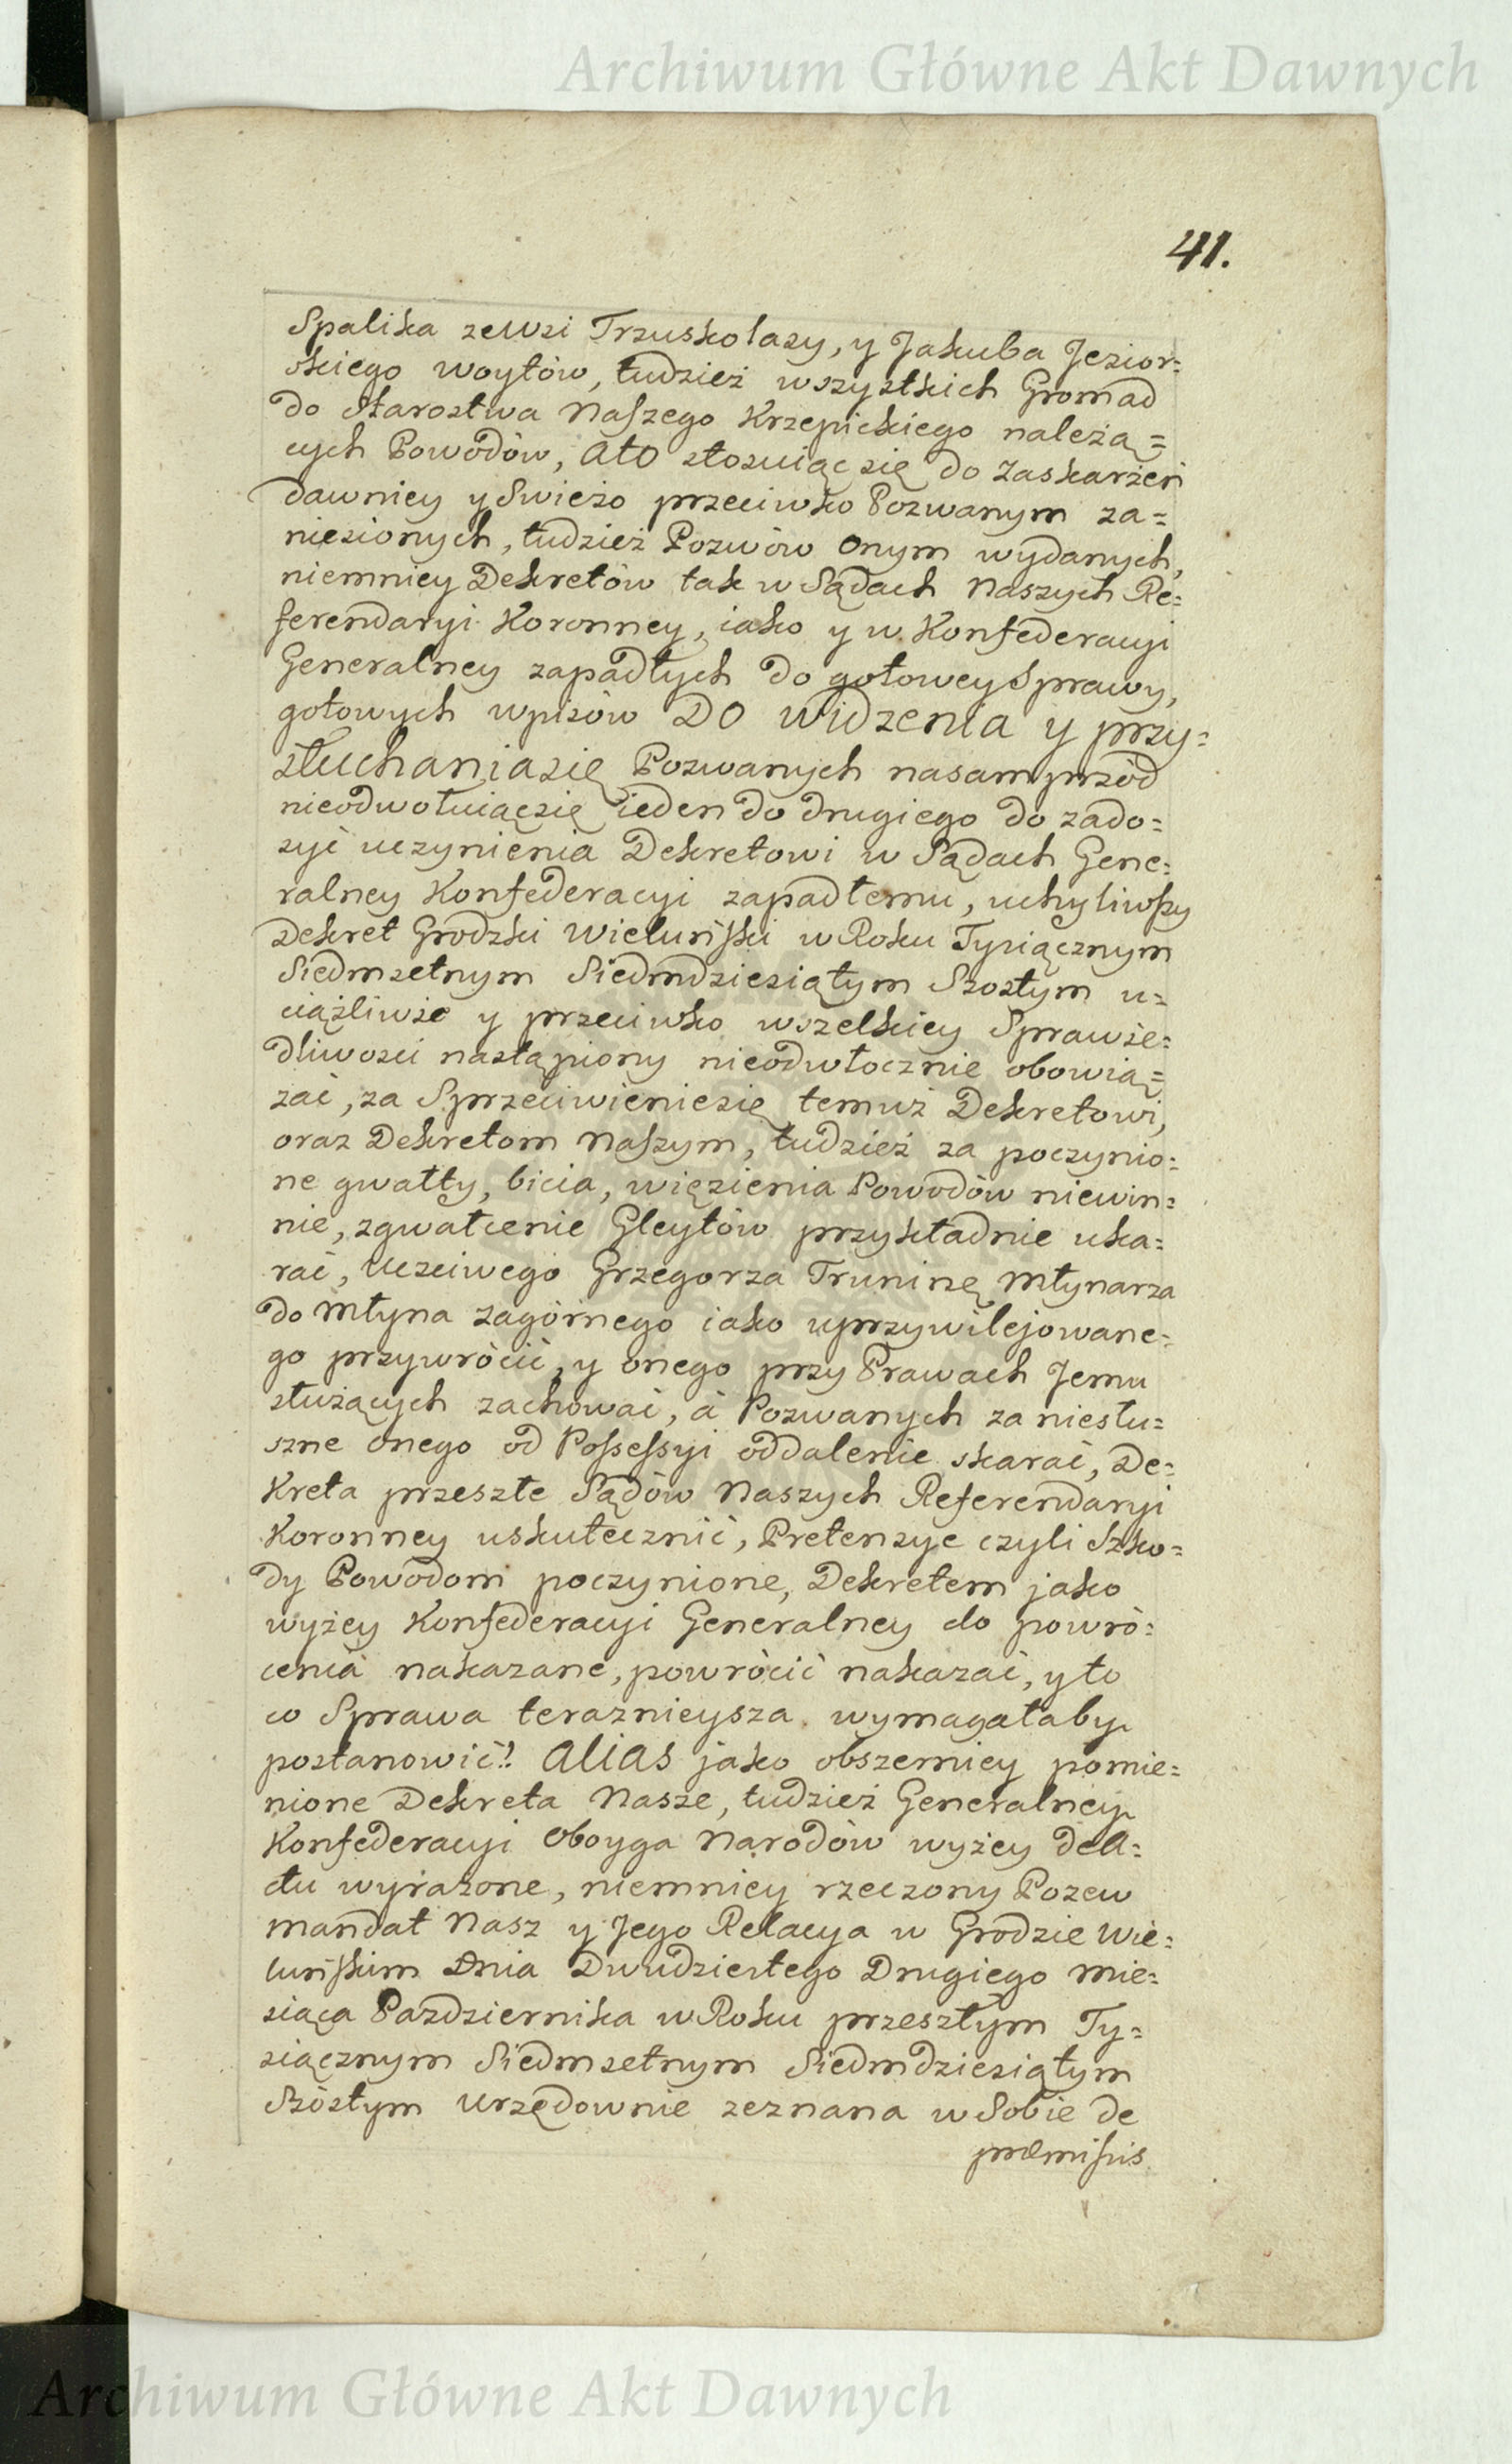 Archiwum Główne Akt Dawnych
41.
Spalika ze wsi Trzuskolasy, y Jakuba Jezior=
skiego woytów, tudzież wszystkich Gromad
do Starostwa Naszego Krzepickiego należą=
cych Powodów, ATO stosuiąc się do Zaskarżeń
dawniey y Swieżo przeciwko Pozwanym za=
niesionych, tudzież Pozwów onym wydanych,
niemniey Dekretów tak w Sądach Naszych Re=
ferendaryi Koronney, iako y w Konfederacyi
Generalney zapadłych do gotowey Sprawy,
gotowych wpisów DO widzenia y przy=
słuchania się Pozwanych nasamprzód
nieodwołuiąc się ieden do drugiego do zado=
syć uczynienia Dekretowi w Sądach Gene=
ralney Konfederacyi zapadłemu, uchyliwszy
Dekret Grodzki Wieluński w Roku Tysiącznym
Siedmsetnym Siedmdziesiątym Szostym u=
ciążliwie y przeciwko wszelkiey Sprawie=
dliwosci nastąpiony nieodwłocznie obowią=
zać, za Sprzeciwienie się temuż Dekretowi,
oraz Dekretom Naszym, tudzież za poczynio=
ne gwałty, bicia, więzienia Powodów niewin=
nie, zgwałcenie Gleytów przykładnie uka=
rać, Uczciwego Grzegorza Truninę Młynarza
do Młyna Zagórnego iako uprzywilejowane=
go przywrócić, y onego przy Prawach Jemu
służących zachować, á Pozwanych za niesłu=
szne onego od Possessyi oddalenie skarać, De=
kreta przeszłe Sądów Naszych Referendaryi
Koronney uskutecznić, Pretensye czyli Szko=
dy Powodom poczynione, Dekretem jako
wyżey Konfederacyi Generalney do powró=
cenia nakazane, powrócić nakazać, y to
co Sprawa teraznieysza wymagałaby
postanowić! ALIAS jako obszerniey pomie=
nione Dekreta Nasze, tudzież Generalney
Konfederacyi Oboyga Narodów wyżey de A=
ctu wyrażone, niemniey rzeczony Pozew
Mandat Nasz y Jego Relacya w Grodzie Wie=
luńskim Dnia Dwudziestego Drugiego Mie=
siąca Pazdziernika w Roku przeszłym Ty=
siącznym Siedmsetnym Siedmdziesiątym
Szóstym Urzędownie zeznana w Sobie de
præmissis
Archiwum Główne Akt Dawnych